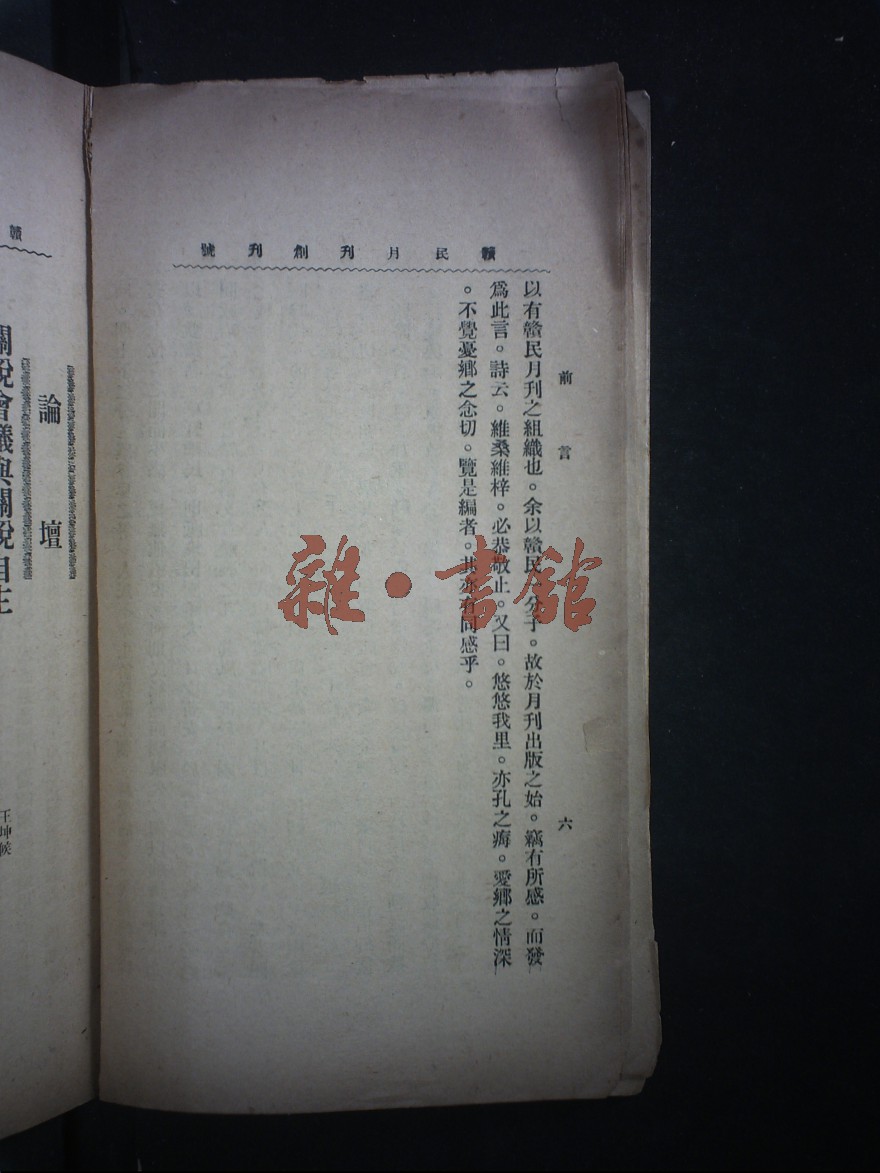 贛民月刊創刊號
前言
六
以有贛民月刊之組織也。余以贛民一分子。故於月刊出版之始。竊有所感。而發
爲此言。詩云。維桑維梓。必恭敬止。又曰。悠悠我里。亦孔之痗。愛鄉之情深
。不覺憂鄉之念切。覽是編者。其亦有同感乎。
雜·書舘
贛
論壇
關稅會議與關稅自主
王坤候